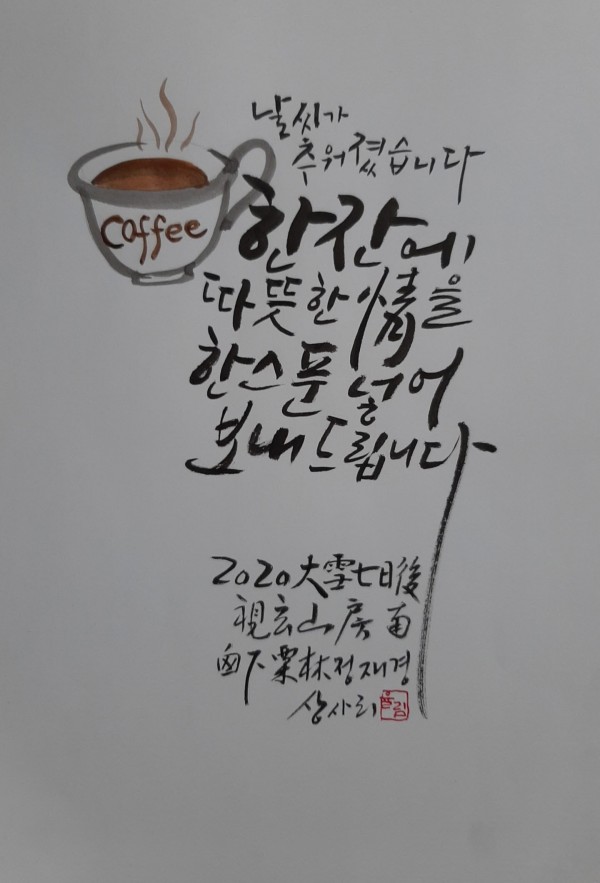 Coffee
날씨가
추워졌습니다
한잔에
따뜻한 情을
한스푼 넣어
보내드립니다
2020 大雪七日後
視玄山房 南
窗下 栗林 정재경
상사리
율림